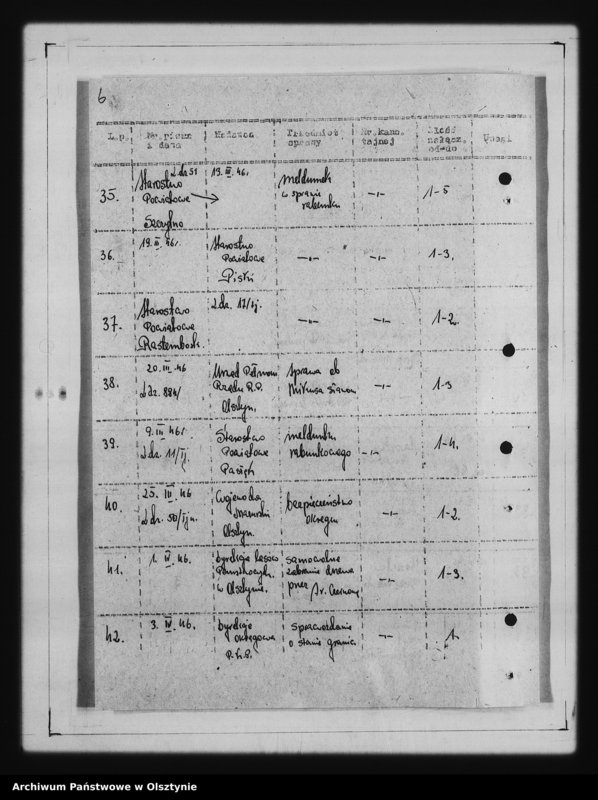 6
L.p. Nr. pisma i data Nadawca Przedmiot sprawy Nr. kanc. tajnej Ilość załącz. od-do Uwagi
35. Starostwo Powiatowe Szczytno L.dz. 51 19.III.46r. meldunek w sprawie rabunku -"- 1-5
36. 19.III.46r. Starostwo Powiatowe Pisz -"- -"- 1-3.
37. Starostwo Powiatowe Rastembork L.dz. 17/tj. -"- -"- 1-2.
38. 20.III.46 L.dz. 884/ Urząd Pełnom. Rządu R.P. Olsztyn. sprawa ob -"- 1-3
39. 9.III.46r. L.dz. 11/tj. Starostwo Powiatowe meldunku rabunkowego -"- 1-4.
40. 25.III.46 L.dz. 50/tjn. Wojewoda Mazurski Olsztyn. bezpieczeństwo okręgu -"- 1-2.
41. 1.IV.46. Dyrekcja Lasów Państwowych w Olsztynie. samowolne zabranie drzewa przez Ar. Czerwoną -"- 1-3.
42. 3.IV.46. Dyrekcja okręgowa sprawozdanie o stanie granic. -"- 1.
Archiwum Państwowe w Olsztynie